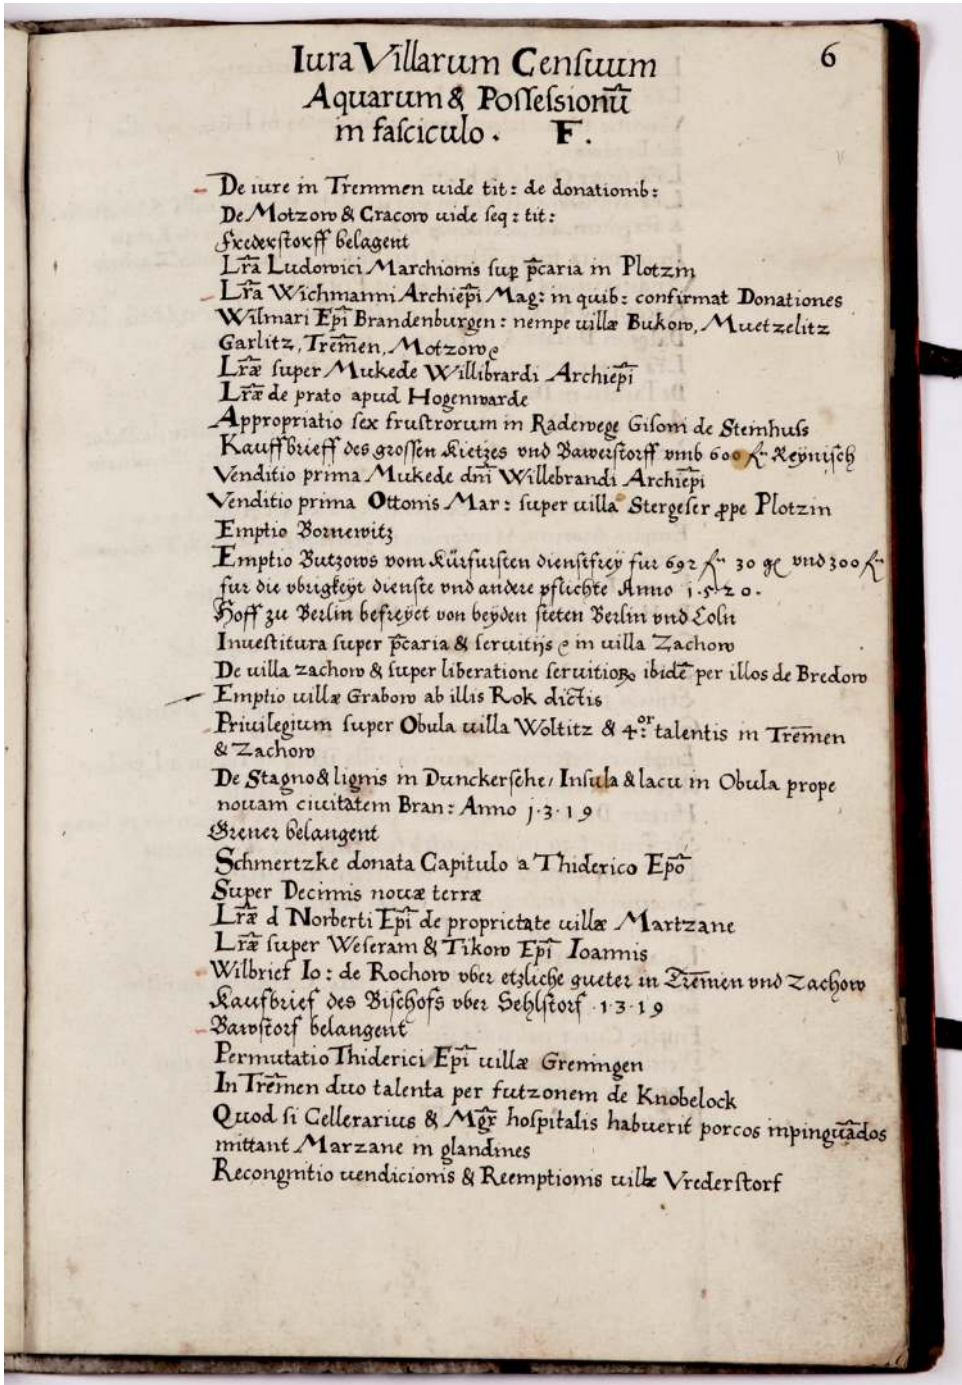 6
Iura Villarum Censuum
Aquarum & Possessionu̅
in fasciculo. F.
De iure in Tremmen uide tit: de donationib:
De Motzow & Cracow uide seq: tit:
Frederstorff belagent
Lr̃a Ludowici Marchionis suꝑ p̃caria in Plotzin
Lr̃a Wichmanni Archiep̃i Mag: in quib: confirmat Donationes
Wilmari Ep̃i Brandenburgen: nempe uillæ Bukow, Muetzelitz
Garlitz, Trem̃en, Motzow ꝛ
Lr̃æ super Mukede Willibrardi Archiep̃i
Lr̃æ de prato apud Hogenwarde
Appropriatio sex frustrorum in Radewege Gisoni de Steinhuss
Kauffbrieff des grossen Kietzes vnd Bawerstorff vmb 600 fl Reynisch
Venditio prima Mukede dn̄i Willebrandi Archiep̃i
Venditio prima Ottonis Mar: super uilla Stergeser ꝓpe Plotzin
Emptio Bornewitz
Emptio Butzows vom Kürfursten dienstfrey fur 692 fl 30 gl vnd 300 fl
fur die vbrigkeyt dienste vnd andere pflichte Anno 1·5·20·
Hoff zu Berlin befreyet von beyden steten Berlin vnd Coln
Inuestitura super p̃caria & seruitijs ꝛ in uilla Zachow
De uilla zachow & super liberatione seruitioꝝ ibidē per illos de Bredow
Emptio uillæ Grabow ab illis Rok dictis
Priuilegium super Obula uilla Woltitz & 4:or talentis in Trem̃en
& Zachow
De Stagno & lignis in Dunckersche / Insula & lacu in Obula prope
nouam ciuitatem Bran: Anno 1·3·19
Grener belangent
Schmertzke donata Capitulo a Thiderico Ep̃o
Super Decimis nouæ terræ
Lr̃æ d Norberti Ep̃i de proprietate uillæ Martzane
Lr̃æ super Weseram & Tikow Ep̃i Ioannis
Wilbrief Io: de Rochow vber etzliche gueter in Trem̃en vnd Zachow
Kaufbrief des Bischofs vber Sehlstorf ·1·3·19
Bawstorf belangent
Permutatio Thiderici Ep̃i uillæ Greningen
In Trem̃en duo talenta per futzonem de Knobelock
Quod si Cellerarius & Mg̃r hospitalis habuerit porcos inpinguādos
mittant Marzane in glandines
Recongnitio uendicionis & Reemptionis uillæ Vrederstorf